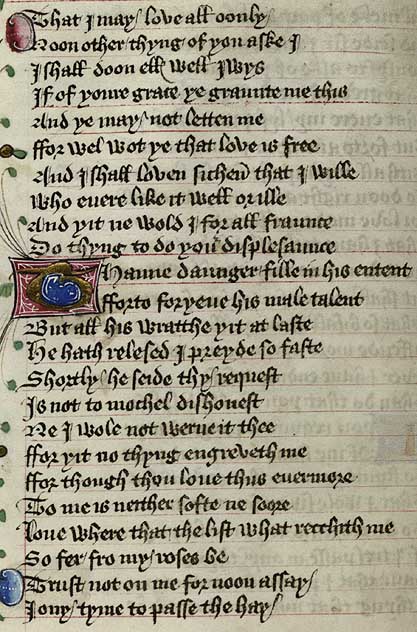 That I may love all oonly
Noon other thyng of you aske I
I shall doon ell well Iwys
If of youre grace ye graunte me this
And ye may not letten me
ffor wel wot ye that love is free
And I shall loven sichen that I wille
Who euere like it well or ille
And yit ne wold I for all fraunce
Do thyng to do you displesaunce
Thanne daunger fille in his entent
fforto foryeue his male talent
But all his wratthe yit at laste
He hath relesed I preyde so faste
Shortly he seide thy request
Is not to mochel dishonest
Ne I wole not werne it thee
ffor yit no thyng engreveth me
ffor though thou loue thus euermore
To me is neither softe ne soore
Loue where that the list what recchith me
So fer fro my roses be
Trust not on me for noon assay
I ony tyme to passe the hay